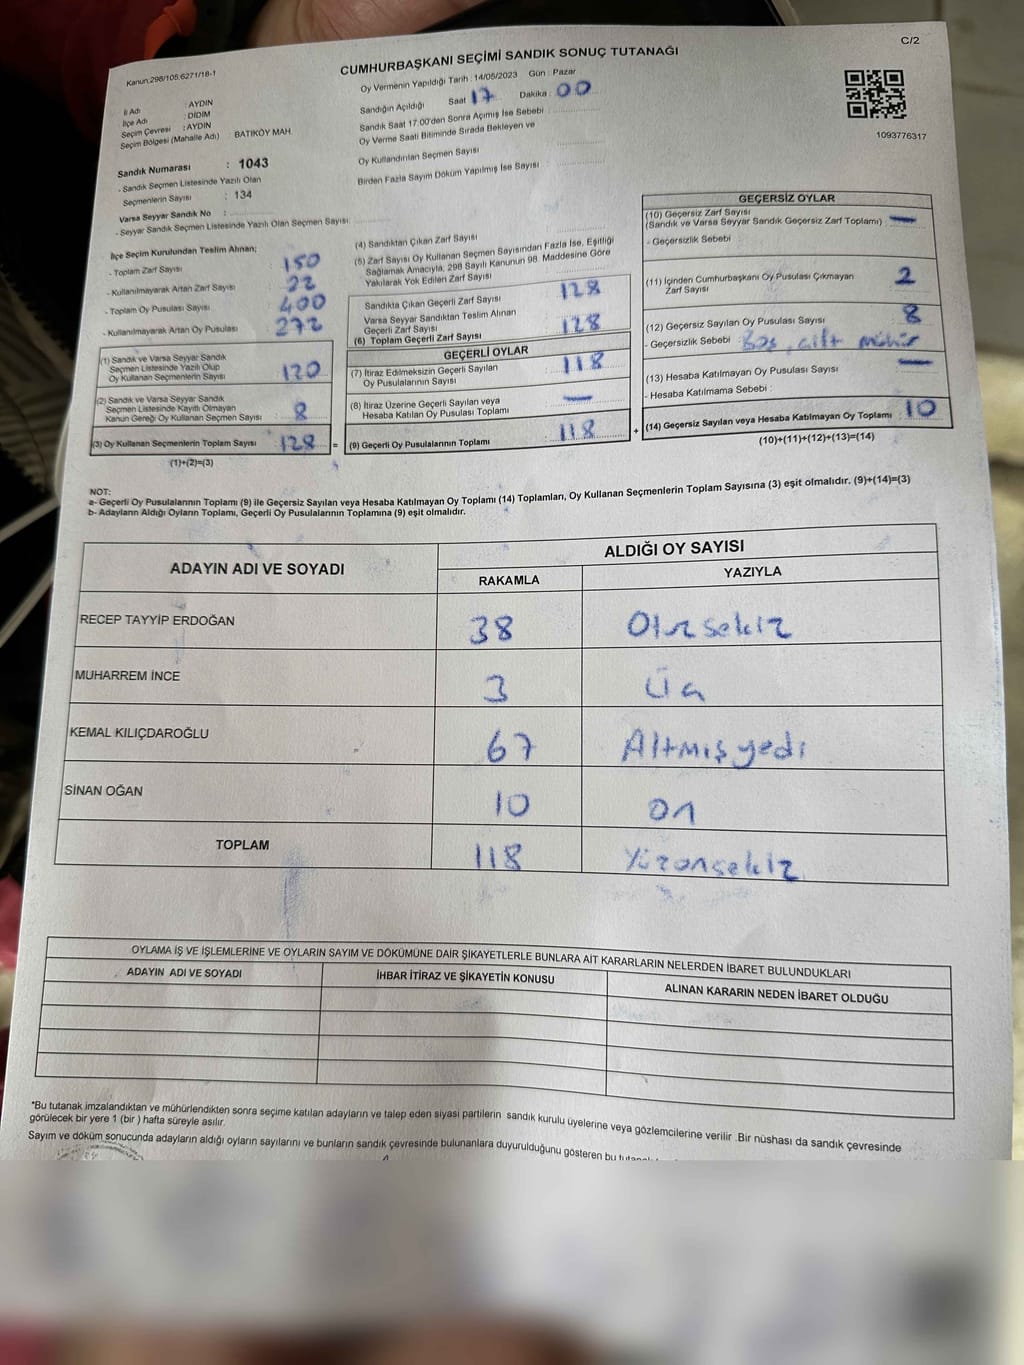 C/2
Kanun:298/105;6271/18-1
CUMHURBAŞKANI SEÇİMİ SANDIK SONUÇ TUTANAĞI
İl Adı : AYDIN
İlçe Adı : DİDİM
Seçim Çevresi : AYDIN
Seçim Bölgesi (Mahalle Adı) BATIKÖY MAH.
Oy Vermenin Yapıldığı Tarih : 14/05/2023 Gün : Pazar
Sandığın Açıldığı Saat 17 Dakika : 00
Sandık Saat 17:00'den Sonra Açımış İse Sebebi :
Oy Verme Saati Bitiminde Sırada Bekleyen ve
Oy Kullandırılan Seçmen Sayısı
Birden Fazla Sayım Döküm Yapılmış İse Sayısı
1093776317
Sandık Numarası : 1043
- Sandık Seçmen Listesinde Yazılı Olan
Seçmenlerin Sayısı : 134
Varsa Seyyar Sandık No :
- Seyyar Sandık Seçmen Listesinde Yazılı Olan Seçmen Sayısı:
İlçe Seçim Kurulundan Teslim Alınan;
- Toplam Zarf Sayısı 150
- Kullanılmayarak Artan Zarf Sayısı 22
- Toplam Oy Pusulası Sayısı 400
- Kullanılmayarak Artan Oy Pusulası 272
(1) Sandık ve Varsa Seyyar Sandık
Seçmen Listesinde Yazılı Olup
Oy Kullanan Seçmenlerin Sayısı 120
(2) Sandık ve Varsa Seyyar Sandık
Seçmen Listesinde Kayıtlı Olmayan
Kanun Gereği Oy Kullanan Seçmen Sayısı 8
(3) Oy Kullanan Seçmenlerin Toplam Sayısı 128 =
(1)+(2)=(3)
(4) Sandıktan Çıkan Zarf Sayısı
(5) Zarf Sayısı Oy Kullanan Seçmen Sayısından Fazla İse, Eşitliği
Sağlamak Amacıyla, 298 Sayılı Kanunun 98. Maddesine Göre
Yakılarak Yok Edilen Zarf Sayısı
Sandıkta Çıkan Geçerli Zarf Sayısı 128
Varsa Seyyar Sandıktan Teslim Alınan
Geçerli Zarf Sayısı
(6) Toplam Geçerli Zarf Sayısı 128
GEÇERLİ OYLAR
(7) İtiraz Edilmeksizin Geçerli Sayılan
Oy Pusulalarının Sayısı 118
(8) İtiraz Üzerine Geçerli Sayılan veya
Hesaba Katılan Oy Pusulası Toplamı —
(9) Geçerli Oy Pusulalarının Toplamı 118 +
GEÇERSİZ OYLAR
(10) Geçersiz Zarf Sayısı
(Sandık ve Varsa Seyyar Sandık Geçersiz Zarf Toplamı) : —
- Geçersizlik Sebebi
(11) İçinden Cumhurbaşkanı Oy Pusulası Çıkmayan
Zarf Sayısı 2
(12) Geçersiz Sayılan Oy Pusulası Sayısı 8
- Geçersizlik Sebebi : Boş, çift mühür
(13) Hesaba Katılmayan Oy Pusulası Sayısı —
- Hesaba Katılmama Sebebi :
(14) Geçersiz Sayılan veya Hesaba Katılmayan Oy Toplamı 10
(10)+(11)+(12)+(13)=(14)
NOT:
a- Geçerli Oy Pusulalarının Toplamı (9) ile Geçersiz Sayılan veya Hesaba Katılmayan Oy Toplamı (14) Toplamları, Oy Kullanan Seçmenlerin Toplam Sayısına (3) eşit olmalıdır. (9)+(14)=(3)
b- Adayların Aldığı Oyların Toplamı, Geçerli Oy Pusulalarının Toplamına (9) eşit olmalıdır.
ADAYIN ADI VE SOYADI
ALDIĞI OY SAYISI
RAKAMLA YAZIYLA
RECEP TAYYİP ERDOĞAN 38 Otuzsekiz
MUHARREM İNCE 3 Üç
KEMAL KILIÇDAROĞLU 67 Altmışyedi
SİNAN OĞAN 10 on
TOPLAM 118 Yüzonsekiz
OYLAMA İŞ VE İŞLEMLERİNE VE OYLARIN SAYIM VE DÖKÜMÜNE DAİR ŞİKAYETLERLE BUNLARA AİT KARARLARIN NELERDEN İBARET BULUNDUKLARI
ADAYIN ADI VE SOYADI İHBAR İTİRAZ VE ŞİKAYETİN KONUSU ALINAN KARARIN NEDEN İBARET OLDUĞU
*Bu tutanak imzalandıktan ve mühürlendikten sonra seçime katılan adayların ve talep eden siyasi partilerin sandık kurulu üyelerine veya gözlemcilerine verilir .Bir nüshası da sandık çevresinde
görülecek bir yere 1 (bir ) hafta süreyle asılır.
Sayım ve döküm sonucunda adayların aldığı oyların sayılarını ve bunların sandık çevresinde bulunanlara duyurulduğunu gösteren bu